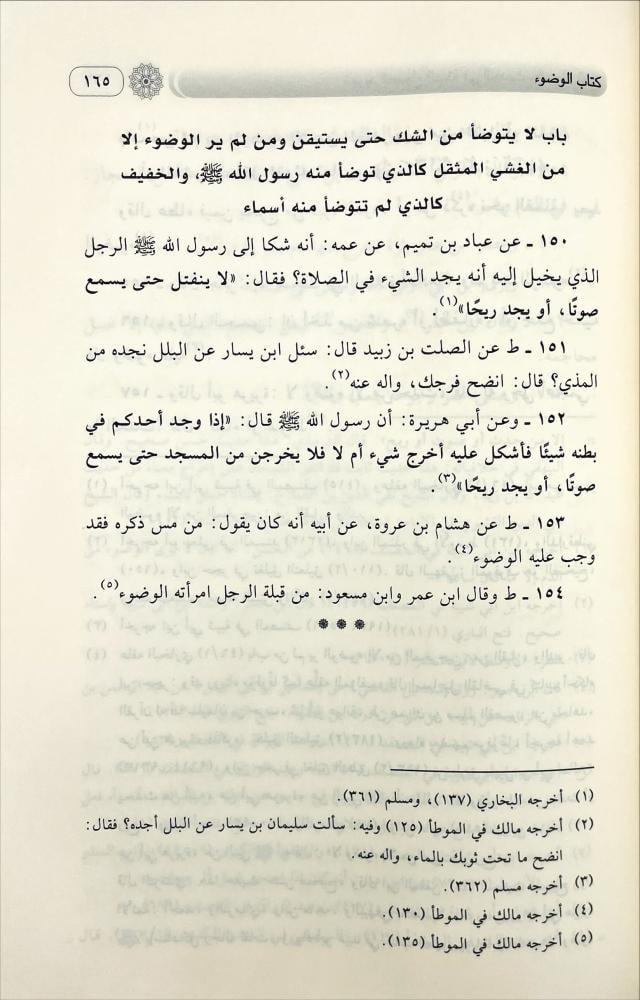 كتاب الوضوء
١٦٥
باب لا يتوضأ من الشك حتى يستيقن ومن لم ير الوضوء إلا
من الغشي المثقل كالذي توضأ منه رسول الله ﷺ، والخفيف
كالذي لم تتوضأ منه أسماء
١٥٠ ـ عن عباد بن تميم، عن عمه: أنه شكا إلى رسول الله ﷺ الرجل
الذي يخيل إليه أنه يجد الشيء في الصلاة؟ فقال: «لا ينفتل حتى يسمع
صوتًا، أو يجد ريحًا»(١).
١٥١ ـ ط عن الصلت بن زبيد قال: سئل ابن يسار عن البلل نجده من
المذي؟ قال: انضح فرجك، واله عنه(٢).
١٥٢ ـ وعن أبي هريرة: أن رسول الله ﷺ قال: «إذا وجد أحدكم في
بطنه شيئًا فأشكل عليه أخرج شيء أم لا فلا يخرجن من المسجد حتى يسمع
صوتًا، أو يجد ريحًا»(٣).
١٥٣ ـ ط عن هشام بن عروة، عن أبيه أنه كان يقول: من مس ذكره فقد
وجب عليه الوضوء(٤).
١٥٤ ـ ط وقال ابن عمر وابن مسعود: من قبلة الرجل امرأته الوضوء(٥).
* * *
(١) أخرجه البخاري (١٣٧)، ومسلم (٣٦١).
(٢) أخرجه مالك في الموطأ (١٢٥) وفيه: سألت سليمان بن يسار عن البلل أجده؟ فقال:
انضح ما تحت ثوبك بالماء، واله عنه.
(٣) أخرجه مسلم (٣٦٢).
(٤) أخرجه مالك في الموطأ (١٣٠).
(٥) أخرجه مالك في الموطأ (١٣٥).